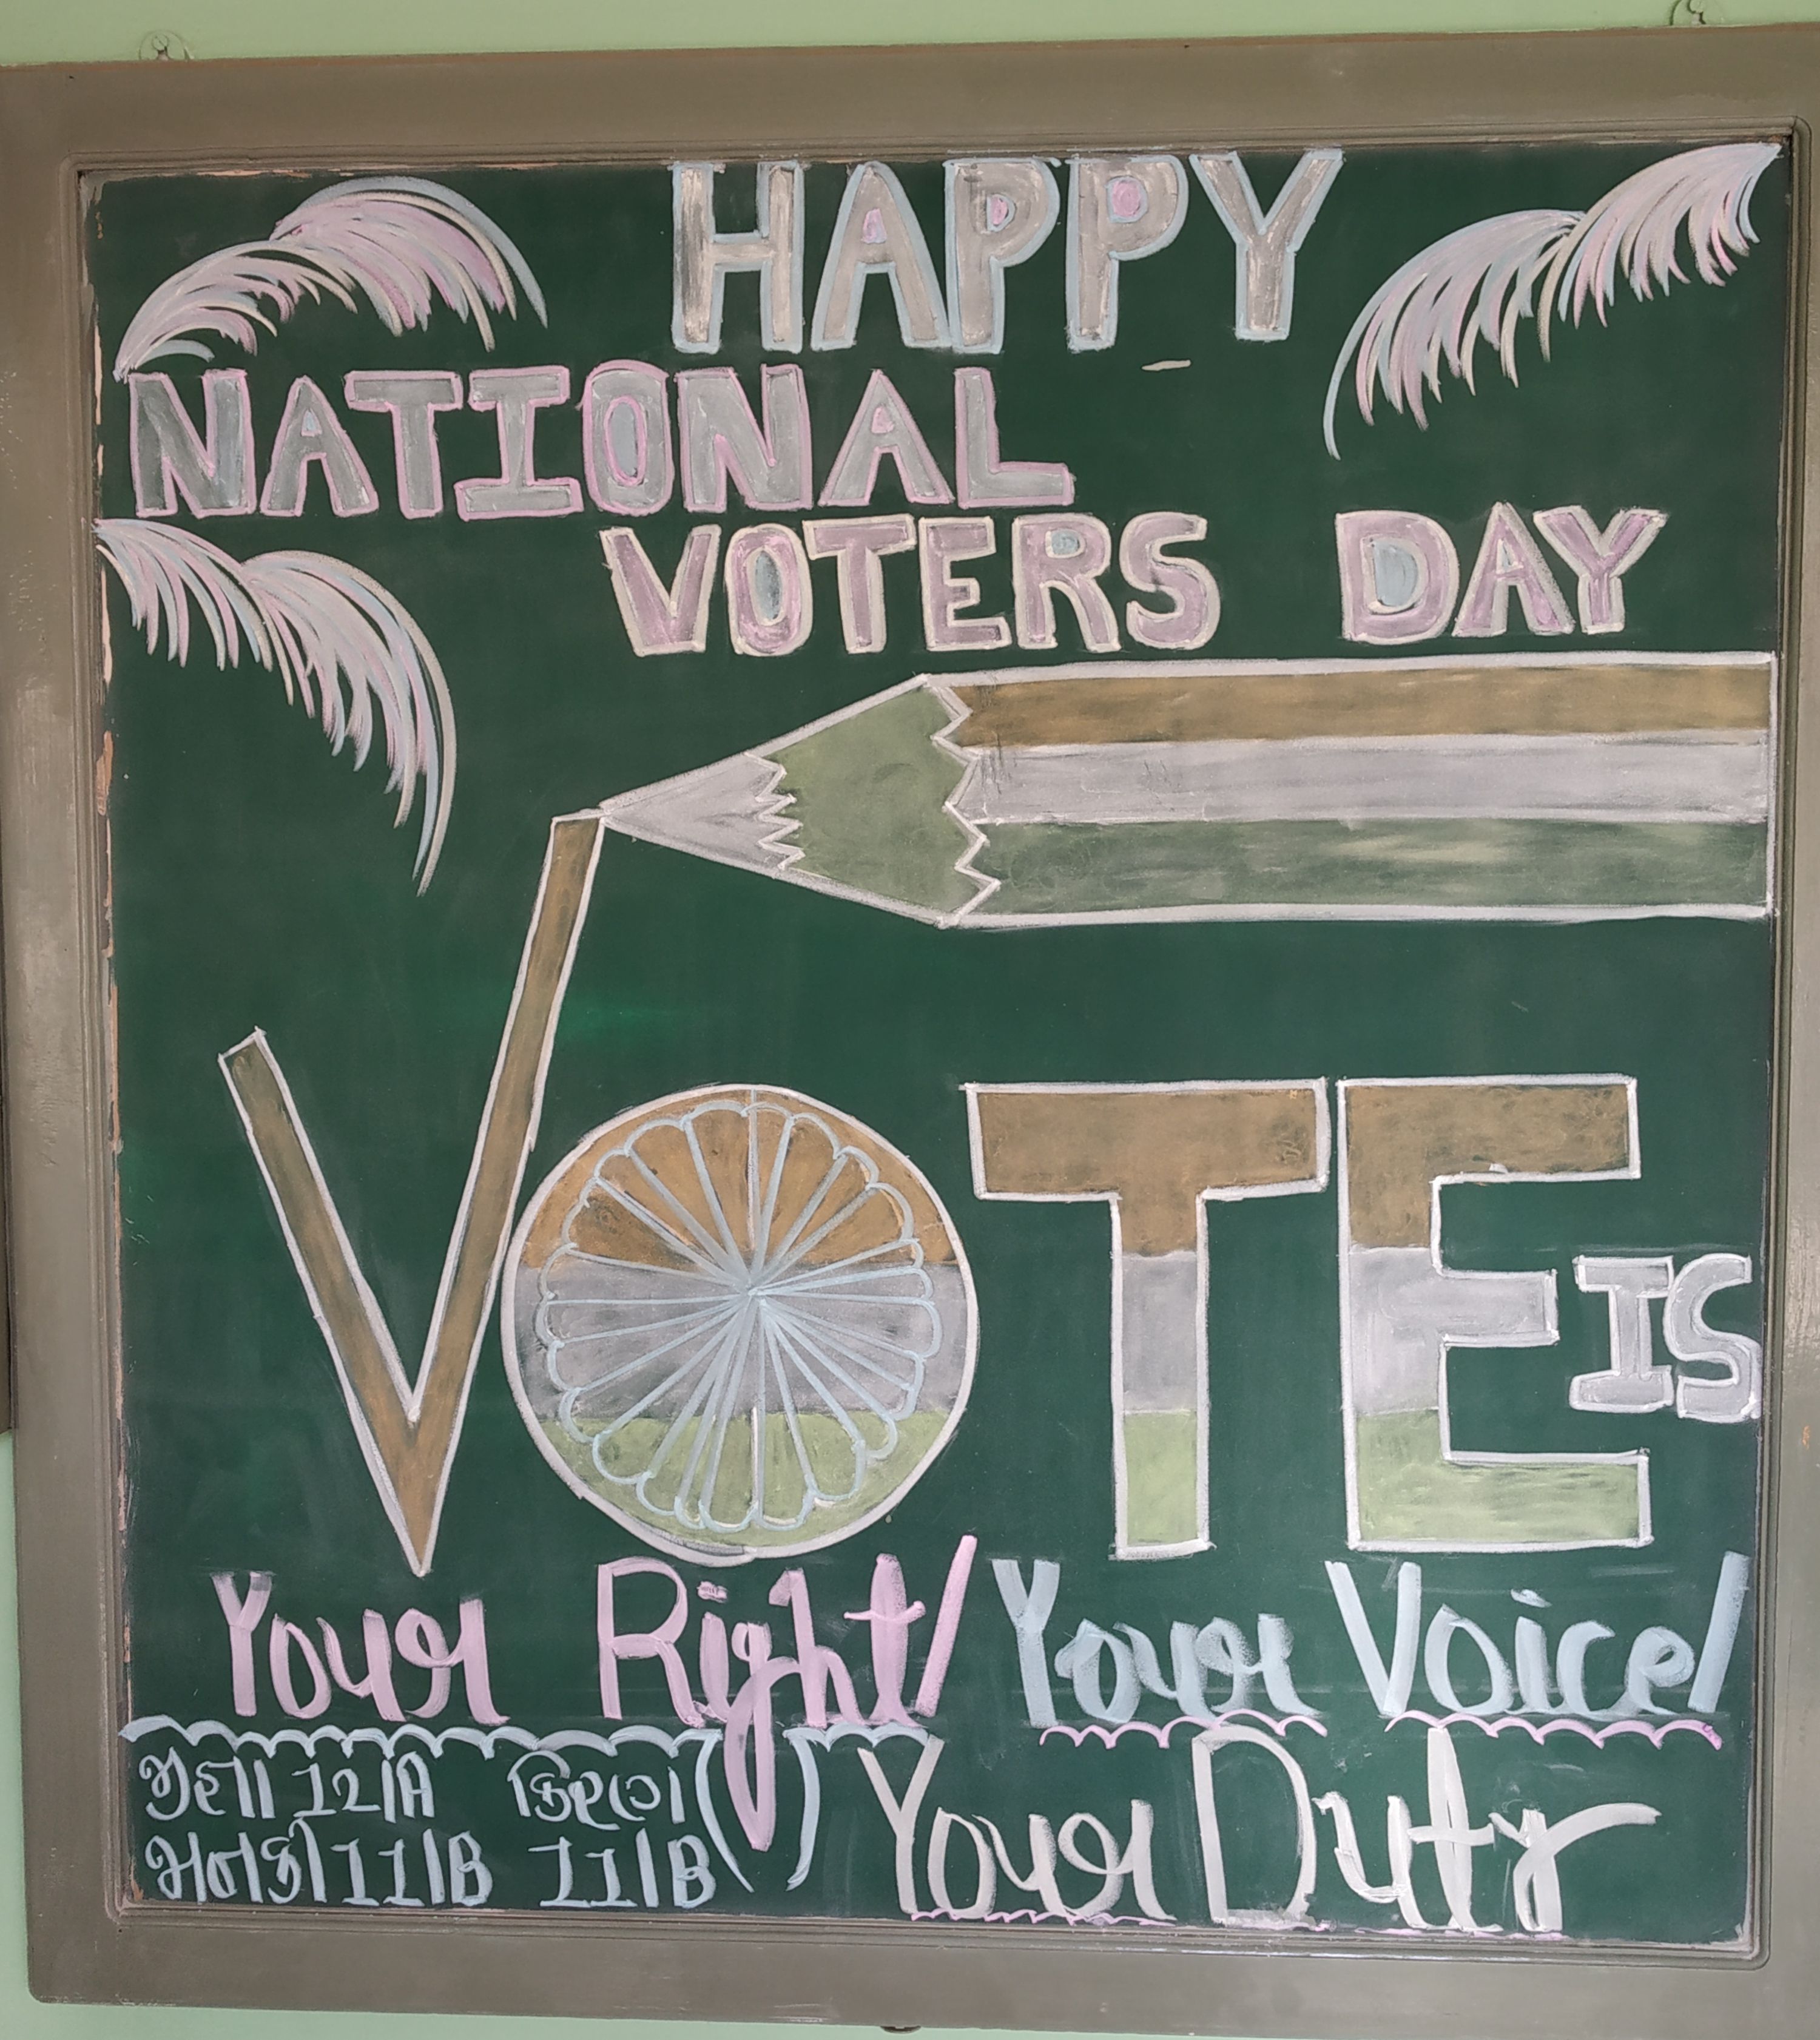 HAPPY
NATIONAL
VOTERS DAY
VOTE IS
Your Right! Your Voice!
Your Duty
12/A કિરણ
11/B 11/B